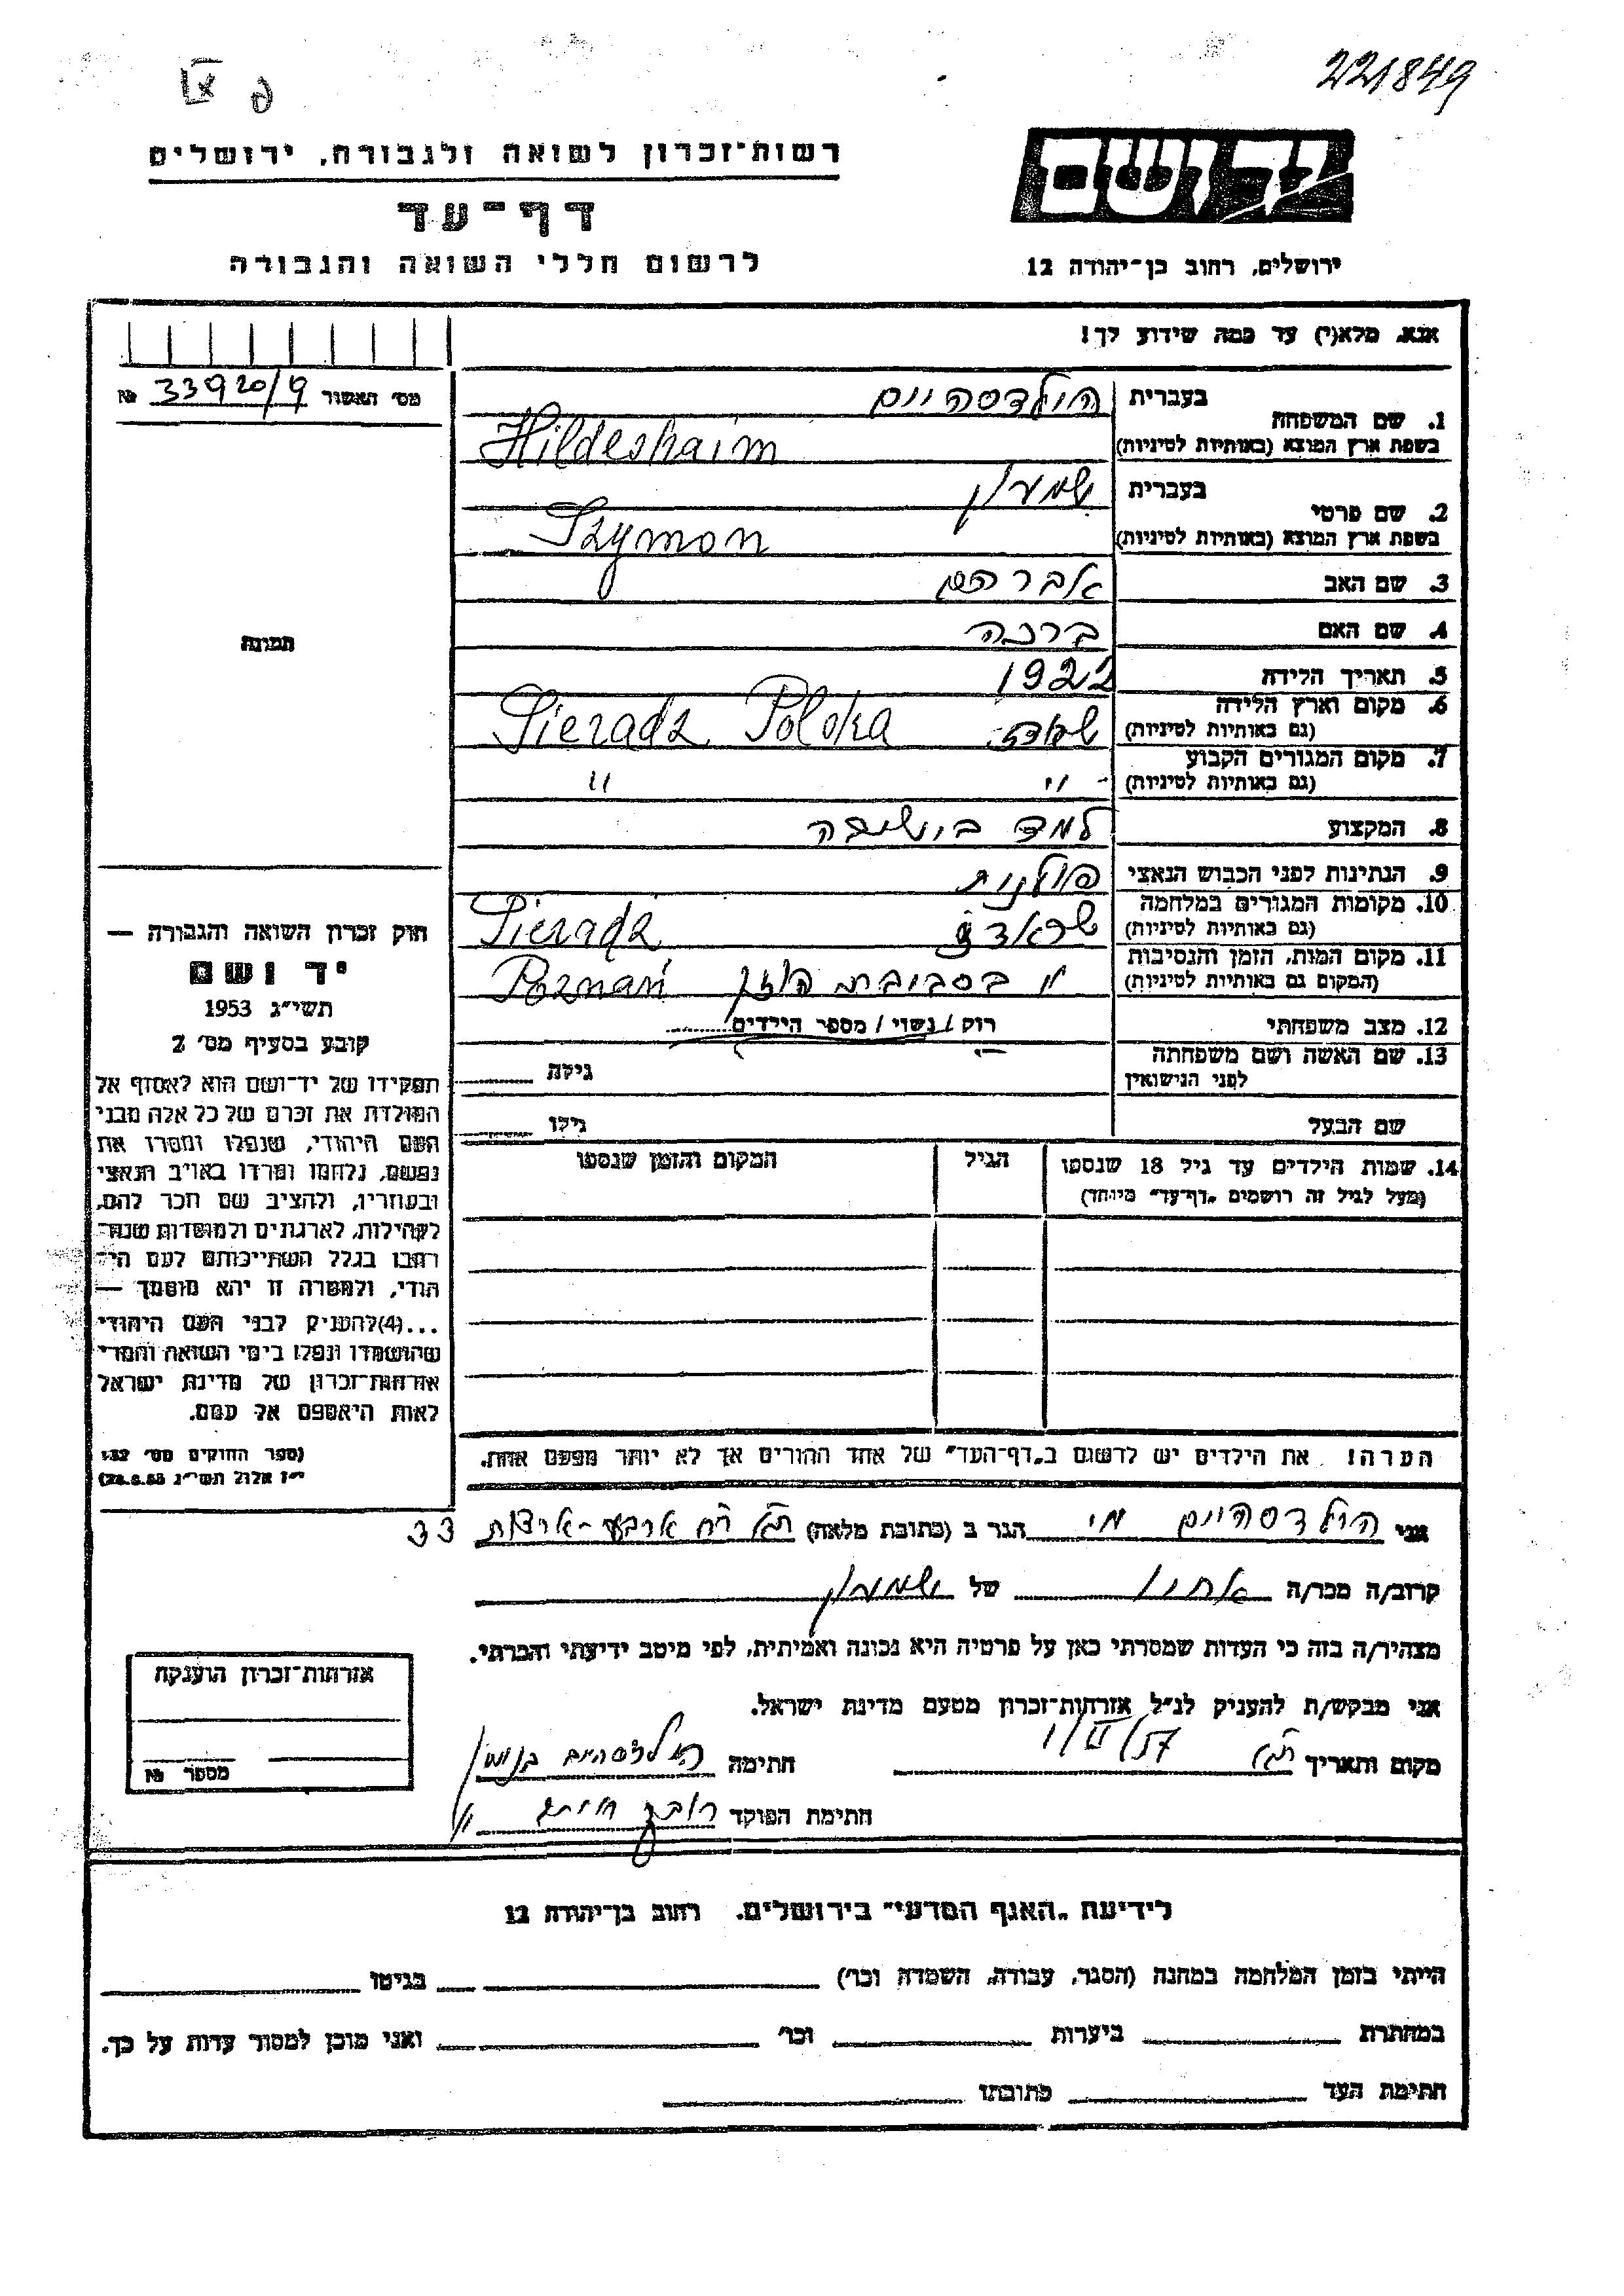 221849
פ
רשות־זכרון לשואה ולגבורה, ירושלים
יד ושם
דף־עד
לרשום חללי השואה והגבורה
ירושלים, רחוב בן־יהודה 12
אנא, מלא(י) עד כמה שידוע לך!
מס׳ האשור 33920/9 №
1. שם המשפחה בעברית הילדסהיים
בשפת ארץ המוצא (באותיות לטיניות) Hildeshaim
2. שם פרטי בעברית שמעון
בשפת ארץ המוצא (באותיות לטיניות) Szymon
3. שם האב אברהם
4. שם האם ברכה
5. תאריך הלידה 1922
6. מקום וארץ הלידה
(גם באותיות לטיניות) Sieradz Polska
7. מקום המגורים הקבוע
(גם באותיות לטיניות) " "
8. המקצוע למד בישיבה
9. הנתינות לפני הכבוש הנאצי פולנית
10. מקומות המגורים במלחמה
(גם באותיות לטיניות) שראדז Sieradz
11. מקום המות, הזמן והנסיבות
(המקום גם באותיות לטיניות) בסביבות פוזן Poznań
12. מצב משפחתי רוק / נשוי / מספר הילדים
13. שם האשה ושם משפחתה
לפני הנישואין גילה
שם הבעל גילו
14. שמות הילדים עד גיל 18 שנספו הגיל המקום והזמן שנספו
(מעל לגיל זה רושמים „דף־עד״ מיוחד)
תמונה
חוק זכרון השואה והגבורה —
יד ושם
תשי״ג 1953
קובע בסעיף מס׳ 2
תפקידו של יד־ושם הוא לאסוף אל
המולדת את זכרם של כל אלה מבני
העם היהודי, שנפלו ומסרו את
נפשם, נלחמו ומרדו באויב הנאצי
ובעוזריו, ולהציב שם וזכר להם,
לקהילות, לארגונים ולמוסדות שנה־
רבו בגלל השתייכותם לעם הי־
הודי, ולמטרה זו יהא מוסמך —
...(4)להעניק לבני העם היהודי
שהושמדו ונפלו בימי השואה והמרי
אזרחות־זכרון של מדינת ישראל
לאות היאספם אל עמם.
(ספר החוקים מס׳ 132
י״ז אלול תשי״ג 28.8.53)
הערה! את הילדים יש לרשום ב„דף־העד״ של אחד ההורים אך לא יותר מפעם אחת.
אני הילדסהיים הגר ב (כתובת מלאה) ת״א רח ארבע־ארצות 33
קרוב/ה מכר/ה אחיו של שמעון
מצהיר/ה בזה כי העדות שמסרתי כאן על פרטיה היא נכונה ואמיתית, לפי מיטב ידיעתי והכרתי.
אני מבקש/ת להעניק לנ״ל אזרחות־זכרון מטעם מדינת ישראל.
מקום ותאריך ת״א חתימה הילדסהיים
חתימת הפוקד
אזרחות־זכרון הוענקה
מספר №
לידיעת „האגף המדעי״ בירושלים. רחוב בן־יהודה 12
הייתי בזמן המלחמה במחנה (הסגר, עבודה, השמדה וכו׳) בגיטו
במחתרת ביערות וכו׳ ואני מוכן למסור עדות על כך.
חתימת העד כתובתו